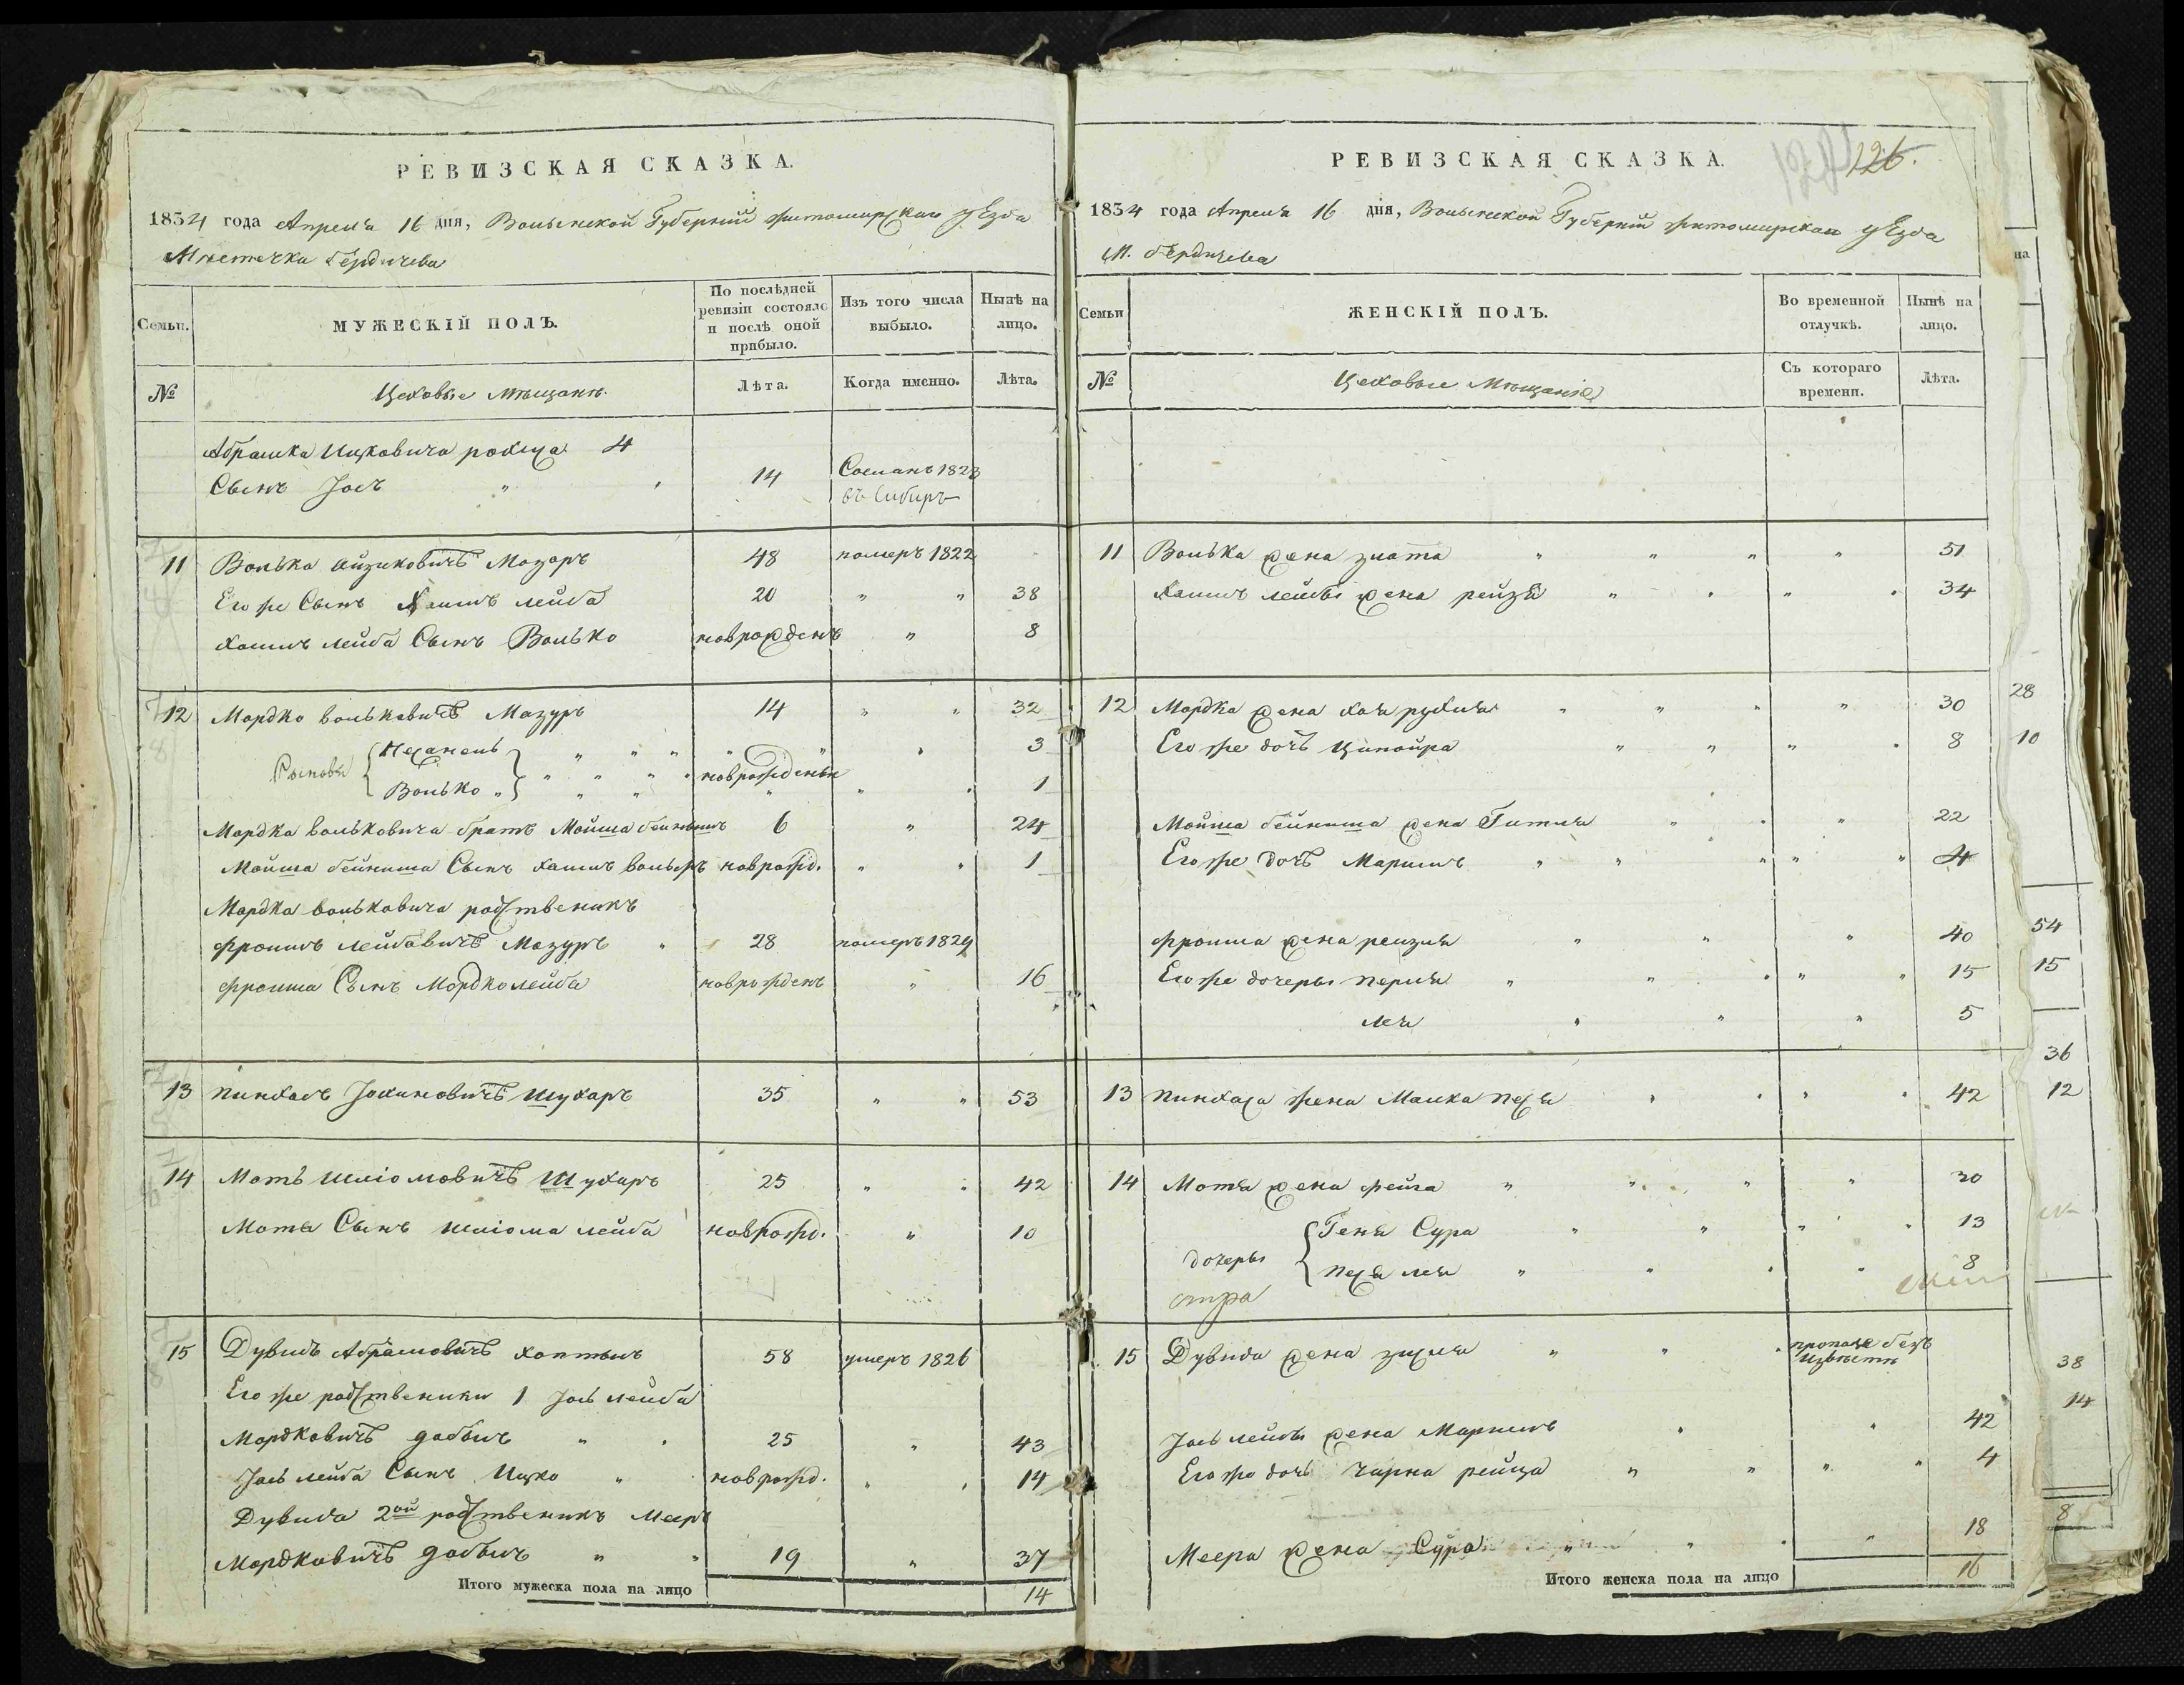 РЕВИЗСКАЯ СКАЗКА.
1834 года Апреля 16 дня, Волынской Губернии житомирскаго уезда
Местечка бердичева
Семьи.
МУЖЕСКІЙ ПОЛЪ.
По послѣдней ревизіи состояло и послѣ оной прибыло.
Изъ того числа выбыло.
Нынѣ на лицо.
№
Цеховые Мѣщанѣ.
Лѣта.
Когда именно.
Лѣта.
Абрамка Ицковича 4
Сынъ Јосъ " 14 Сосланъ 1823
въ Сибирь
11 Волька Айзиковичъ Мазоръ 48 померъ 1822
Его же Сынъ Хаимъ лейба 20 " " 38
хаимъ лейба Сынъ Вольконоврожденъ " 8
12 Мордко вольковичъ Мазуръ 14 " " 32
Сыновья Несанель " " " " " " 3
Волько " " " " " новрожденъ " " 1
Мордка вольковича братъ Мойша бейнышъ 6 " 24
Мойша бейниша Сынъ хаимъ вольфъ наврожд. " " 1
Мордка вольковича родственикъ
фроимъ лейбовичъ Мазуръ " 28 померъ 1829
фроима Сынъ Мордколейба новрожденъ " 16
13 пинхасъ Јохимовичъ Шухаръ 35 " " 53
14 Моть Шліомовичъ Шухаръ 25 " " 42
Мотя Сынъ шліома лейба новрожд. " 10
15 Дувидъ Абрамовичъ 58 умеръ 1826
Его же родственики 1 Јось лейба
Мордковичъ " " 25 " 43
Јось лейба Сынъ Ицко " новрожд. " " 14
Дувида 2ой родственикъ Мееръ
Мордковичъ " " 19 " 37
Итого мужеска пола на лицо 14
РЕВИЗСКАЯ СКАЗКА.
126.
1834 года Апреля 16 дня, Волынской Губернии житомирскаго уезда
М. бердичева
Семьи
ЖЕНСКІЙ ПОЛЪ.
Во временной отлучкѣ.
Нынѣ на лицо.
№
Цеховые
Съ котораго времени.
Лѣта.
11 Волька жена злата " " " " 51
хаимъ лейбы жена рейзя " " " " 34
12 Мордка жена хая рухля " " " " 30
Его же дочь Ципойра " " " " 8
Мойша бейниша жена Гитля " " " 22
Его же дочь Маримъ " " " " " 4
фроима жена рейзля " " " 40
Его же дочеры перля " " " " " 15
лея " " " 5
13 пинхаса жена Малка песя " " " " 42
14 Мотя жена фейга " " " " 30
дочеры Геня Сура " " " " 13
песя лея " " " " 8
15 Дувида жена зислея " " " пропала безъ
извѣстн
Јось лейбы жена Маримъ " " 42
Его же дочь Чарна рейза " " " " 4
Меера жена Сура " " " 18
Итого женска пола на лицо 16
на
28
10
54
15
36
12
38
14
8